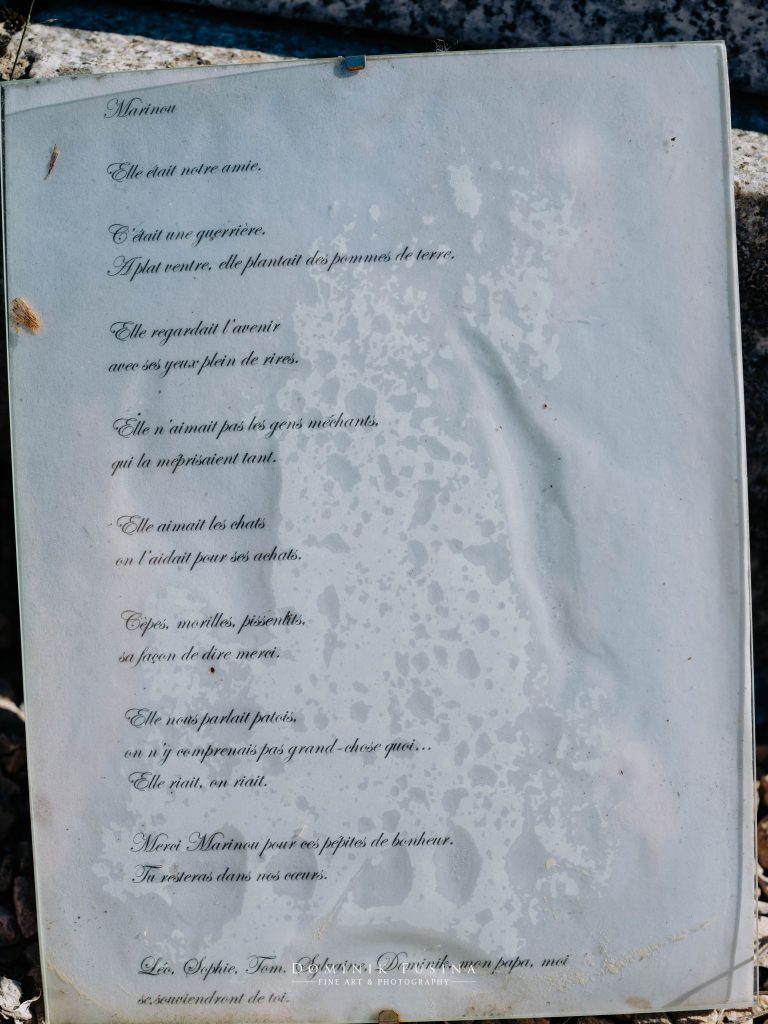 Marinou
Elle était notre amie.
C'était une guerrière.
A plat ventre, elle plantait des pommes de terre.
Elle regardait l'avenir
avec ses yeux plein de rires.
Elle n'aimait pas les gens méchants,
qui la méprisaient tant.
Elle aimait les chats
on l'aidait pour ses achats.
Cèpes, morilles, pissenlits,
sa façon de dire merci.
Elle nous parlait patois,
on n'y comprenais pas grand-chose quoi...
Elle riait, on riait.
Merci Marinou pour ces pépites de bonheur.
Tu resteras dans nos cœurs.
Léo, Sophie, Tom, Sylvaine, Dominik, mon papa, moi
se souviendront de toi.
DOMINIK FUSINA
FINE ART & PHOTOGRAPHY